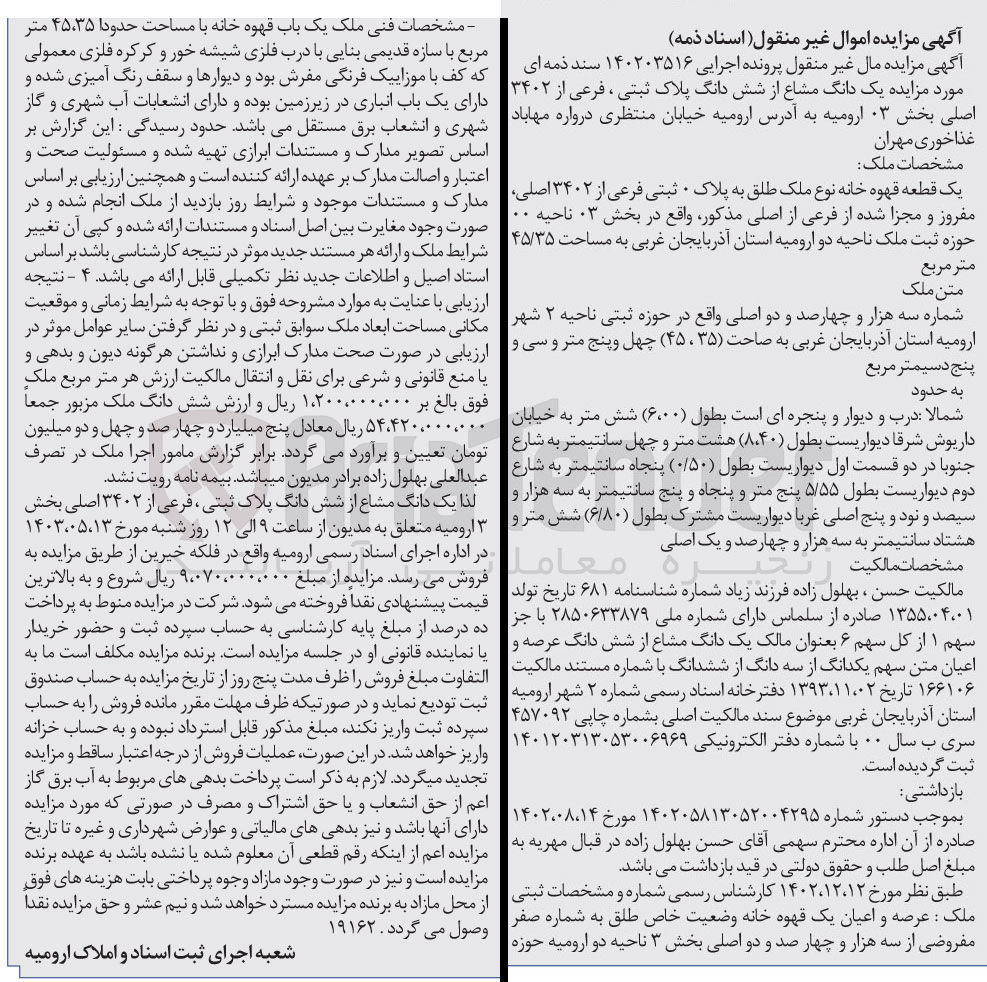 آگهی مزایده اموال غیر منقول( اسناد ذمه)
آگهی مزایده مال غیر منقول پرونده اجرایی ۱۴۰۲۰۳۵۱۶ سند ذمه ای
مورد مزایده یک دانگ مشاع از شش دانگ پلاک ثبتی ، فرعی از ۳۴۰۲
اصلی بخش ۰۳ ارومیه به آدرس ارومیه خیابان منتظری درواره مهاباد
غذاخوری مهران
مشخصات ملک:
یک قطعه قهوه خانه نوع ملک طلق به پلاک ۰ ثبتی فرعی از ۳۴۰۲ اصلی،
مفروز و مجزا شده از فرعی از اصلی مذکور، واقع در بخش ۰۳ ناحیه ۰۰
حوزه ثبت ملک ناحیه دو ارومیه استان آذربایجان غربی به مساحت ۴۵/۳۵
متر مربع
متن ملک
شماره سه هزار و چهارصد و دو اصلی واقع در حوزه ثبتی ناحیه ۲ شهر
ارومیه استان آذربایجان غربی به صاحت (۳۵ ، ۴۵) چهل وپنج متر و سی و
پنج دسیمتر مربع
به حدود
شمالا :درب و دیوار و پنجره ای است بطول (۶،۰۰) شش متر به خیابان
داریوش شرقا دیواریست بطول (۸،۴۰) هشت متر و چهل سانتیمتر به شارع
جنوبا در دو قسمت اول دیواریست بطول (۰/۵۰) پنجاه سانتیمتر به شارع
دوم دیواریست بطول ۵/۵۵ پنج متر و پنجاه و پنج سانتیمتر به سه هزار و
سیصد و نود و پنج اصلی غربا دیواریست مشترک بطول (۶/۸۰) شش متر و
هشتاد سانتیمتر به سه هزار و چهارصد و یک اصلی
مشخصات‌مالکیت
مالکیت حسن ، بهلول زاده فرزند زیاد شماره شناسنامه ۶۸۱ تاریخ تولد
۱۳۵۵،۰۴،۰۱ صادره از سلماس دارای شماره ملی ۲۸۵۰۶۳۳۸۷۹ با جز
سهم ۱ از کل سهم ۶ بعنوان مالک یک دانگ مشاع از شش دانگ عرصه و
اعیان متن سهم یکدانگ از سه دانگ از ششدانگ با شماره مستند مالکیت
۱۶۶۱۰۶ تاریخ ۱۳۹۳،۱۱،۰۲ دفترخانه اسناد رسمی شماره ۲ شهر ارومیه
استان آذربایجان غربی موضوع سند مالکیت اصلی بشماره چاپی ۴۵۷۰۹۲
سری ب سال ۰۰ با شماره دفتر الکترونیکی ۱۴۰۱۲۰۳۱۳۰۵۳۰۰۶۹۶۹
ثبت گردیده است.
بازداشتی:
بموجب دستور شماره ۱۴۰۲۰۵۸۱۳۰۵۲۰۰۴۲۹۵ مورخ ۱۴۰۲،۰۸،۱۴
صادره از آن اداره محترم سهمی آقای حسن بهلول زاده در قبال مهریه به
مبلغ اصل طلب و حقوق دولتی در قید بازداشت می باشد.
طبق نظر مورخ ۱۴۰۲،۱۲،۱۲ کارشناس رسمی شماره و مشخصات ثبتی
ملک : عرصه و اعیان یک قهوه خانه وضعیت خاص طلق به شماره صفر
مفروضی از سه هزار و چهار صد و دو اصلی بخش ۳ ناحیه دو ارومیه حوزه
-مشخصات فنی ملک یک باب قهوه خانه با مساحت حدودا ۴۵،۳۵ متر
مربع با سازه قدیمی بنایی با درب فلزی شیشه خور و کرکره فلزی معمولی
که کف با موزاییک فرنگی مفرش بود و دیوارها و سقف رنگ آمیزی شده و
دارای یک باب انباری در زیرزمین بوده و دارای انشعابات آب شهری و گاز
شهری و انشعاب برق مستقل می باشد. حدود رسیدگی : این گزارش بر
اساس تصویر مدارک و مستندات ابرازی تهیه شده و مسئولیت صحت و
اعتبار و اصالت مدارک بر عهده ارائه کننده است و همچنین ارزیابی بر اساس
مدارک و مستندات موجود و شرایط روز بازدید از ملک انجام شده و در
صورت وجود مغایرت بین اصل اسناد و مستندات ارائه شده و کپی آن تغییر
شرایط ملک و ارائه هر مستند جدید موثر در نتیجه کارشناسی باشد بر اساس
استاد اصیل و اطلاعات جدید نظر تکمیلی قابل ارائه می باشد. ۴ - نتیجه
ارزیابی با عنایت به موارد مشروحه فوق و با توجه به شرایط زمانی و موقعیت
مکانی مساحت ابعاد ملک سوابق ثبتی و در نظر گرفتن سایر عوامل موثر در
ارزیابی در صورت صحت مدارک ابرازی و نداشتن هرگونه دیون و بدهی و
یا منع قانونی و شرعی برای نقل و انتقال مالکیت ارزش هر متر مربع ملک
فوق بالغ بر ۱،۲۰۰،۰۰۰،۰۰۰ ریال و ارزش شش دانگ ملک مزبور جمعاً
۵۴،۴۲۰،۰۰۰،۰۰۰ ریال معادل پنج میلیارد و چهار صد و چهل و دو میلیون
تومان تعیین و برآورد می گردد. برابر گزارش مامور اجرا ملک در تصرف
عبدالعلی بهلول زاده برادر مدیون میباشد. بیمه نامه رویت نشد.
لذا یک دانگ مشاع از شش دانگ پلاک ثبتی ، فرعی از ۳۴۰۲ اصلی بخش
۳ ارومیه متعلق به مدیون از ساعت ۹ الی ۱۲ روز شنبه مورخ ۱۴۰۳،۰۵،۱۳
در اداره اجرای اسناد رسمی ارومیه واقع در فلکه خیرین از طریق مزایده به
فروش می رسد. مزایده از مبلغ ۹،۰۷۰،۰۰۰،۰۰۰ ریال شروع و به بالاترین
قیمت پیشنهادی نقداً فروخته می شود. شرکت در مزایده منوط به پرداخت
ده درصد از مبلغ پایه کارشناسی به حساب سپرده ثبت و حضور خریدار
یا نماینده قانونی او در جلسه مزایده است. برنده مزایده مکلف است ما به
التفاوت مبلغ فروش را ظرف مدت پنج روز از تاریخ مزایده به حساب صندوق
ثبت تودیع نماید و در صورتیکه ظرف مهلت مقرر مانده فروش را به حساب
سپرده ثبت واریز نکند، مبلغ مذکور قابل استرداد نبوده و به حساب خزانه
واریز خواهد شد. در این صورت، عملیات فروش از درجه اعتبار ساقط و مزایده
تجدید میگردد. لازم به ذکر است پرداخت بدهی های مربوط به آب برق گاز
اعم از حق انشعاب و یا حق اشتراک و مصرف در صورتی که مورد مزایده
دارای آنها باشد و نیز بدهی های مالیاتی و عوارض شهرداری و غیره تا تاریخ
مزایده اعم از اینکه رقم قطعی آن معلوم شده یا نشده باشد به عهده برنده
مزایده است و نیز در صورت وجود مازاد وجوه پرداختی بابت هزینه های فوق
از محل مازاد به برنده مزایده مسترد خواهد شد و نیم عشر و حق مزایده نقداً
وصول می گردد . ۱۹۱۶۲
شعبه اجرای ثبت اسناد و املاک ارومیه